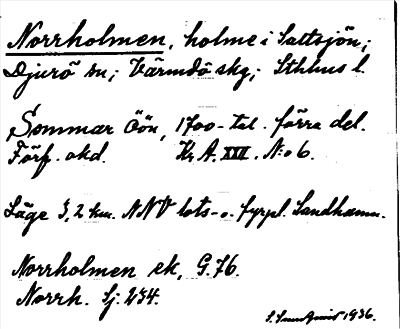 Norrholmen, holme i Saltsjön,;
Djurö sn,; Värmdö skg,; Sthlms l.
Sommar Öön, 1700-tal. förra del.
Förf. okd. Kr. A. XXII. N:o 6.
Läge 3,2 km. NNV lots- o. fyrpl. Sandhamn.
Norrholmen ek, G. 76.
Norrh. Sj. 234.
1936.